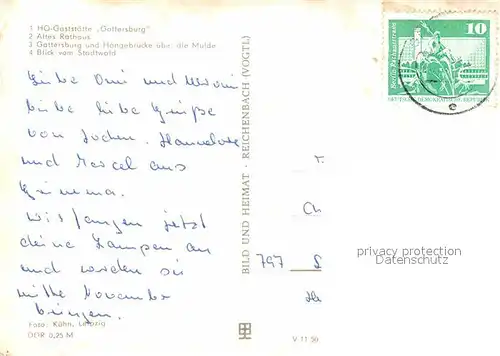 1 HO-Gaststätte „Gattersburg"
2 Altes Rathaus
3 Gattersburg und Hängebrücke über die Mulde
4 Blick vom Stadtwald
Liebe Omi und
liebe liebe Grüße
von Jochen, Hannelore
und Marcel aus
Grimma.
Wir fangen jetzt
deine Lampen an
und werden sie
mitte November
bringen.
Foto: Kühn, Leipzig
DDR 0,25 M
BILD UND HEIMAT · REICHENBACH (VOGTL)
V 11 50
10
DEUTSCHE DEMOKRATISCHE REPUBLIK
e
Ch
797
privacy protection
DATENSCHUTZ